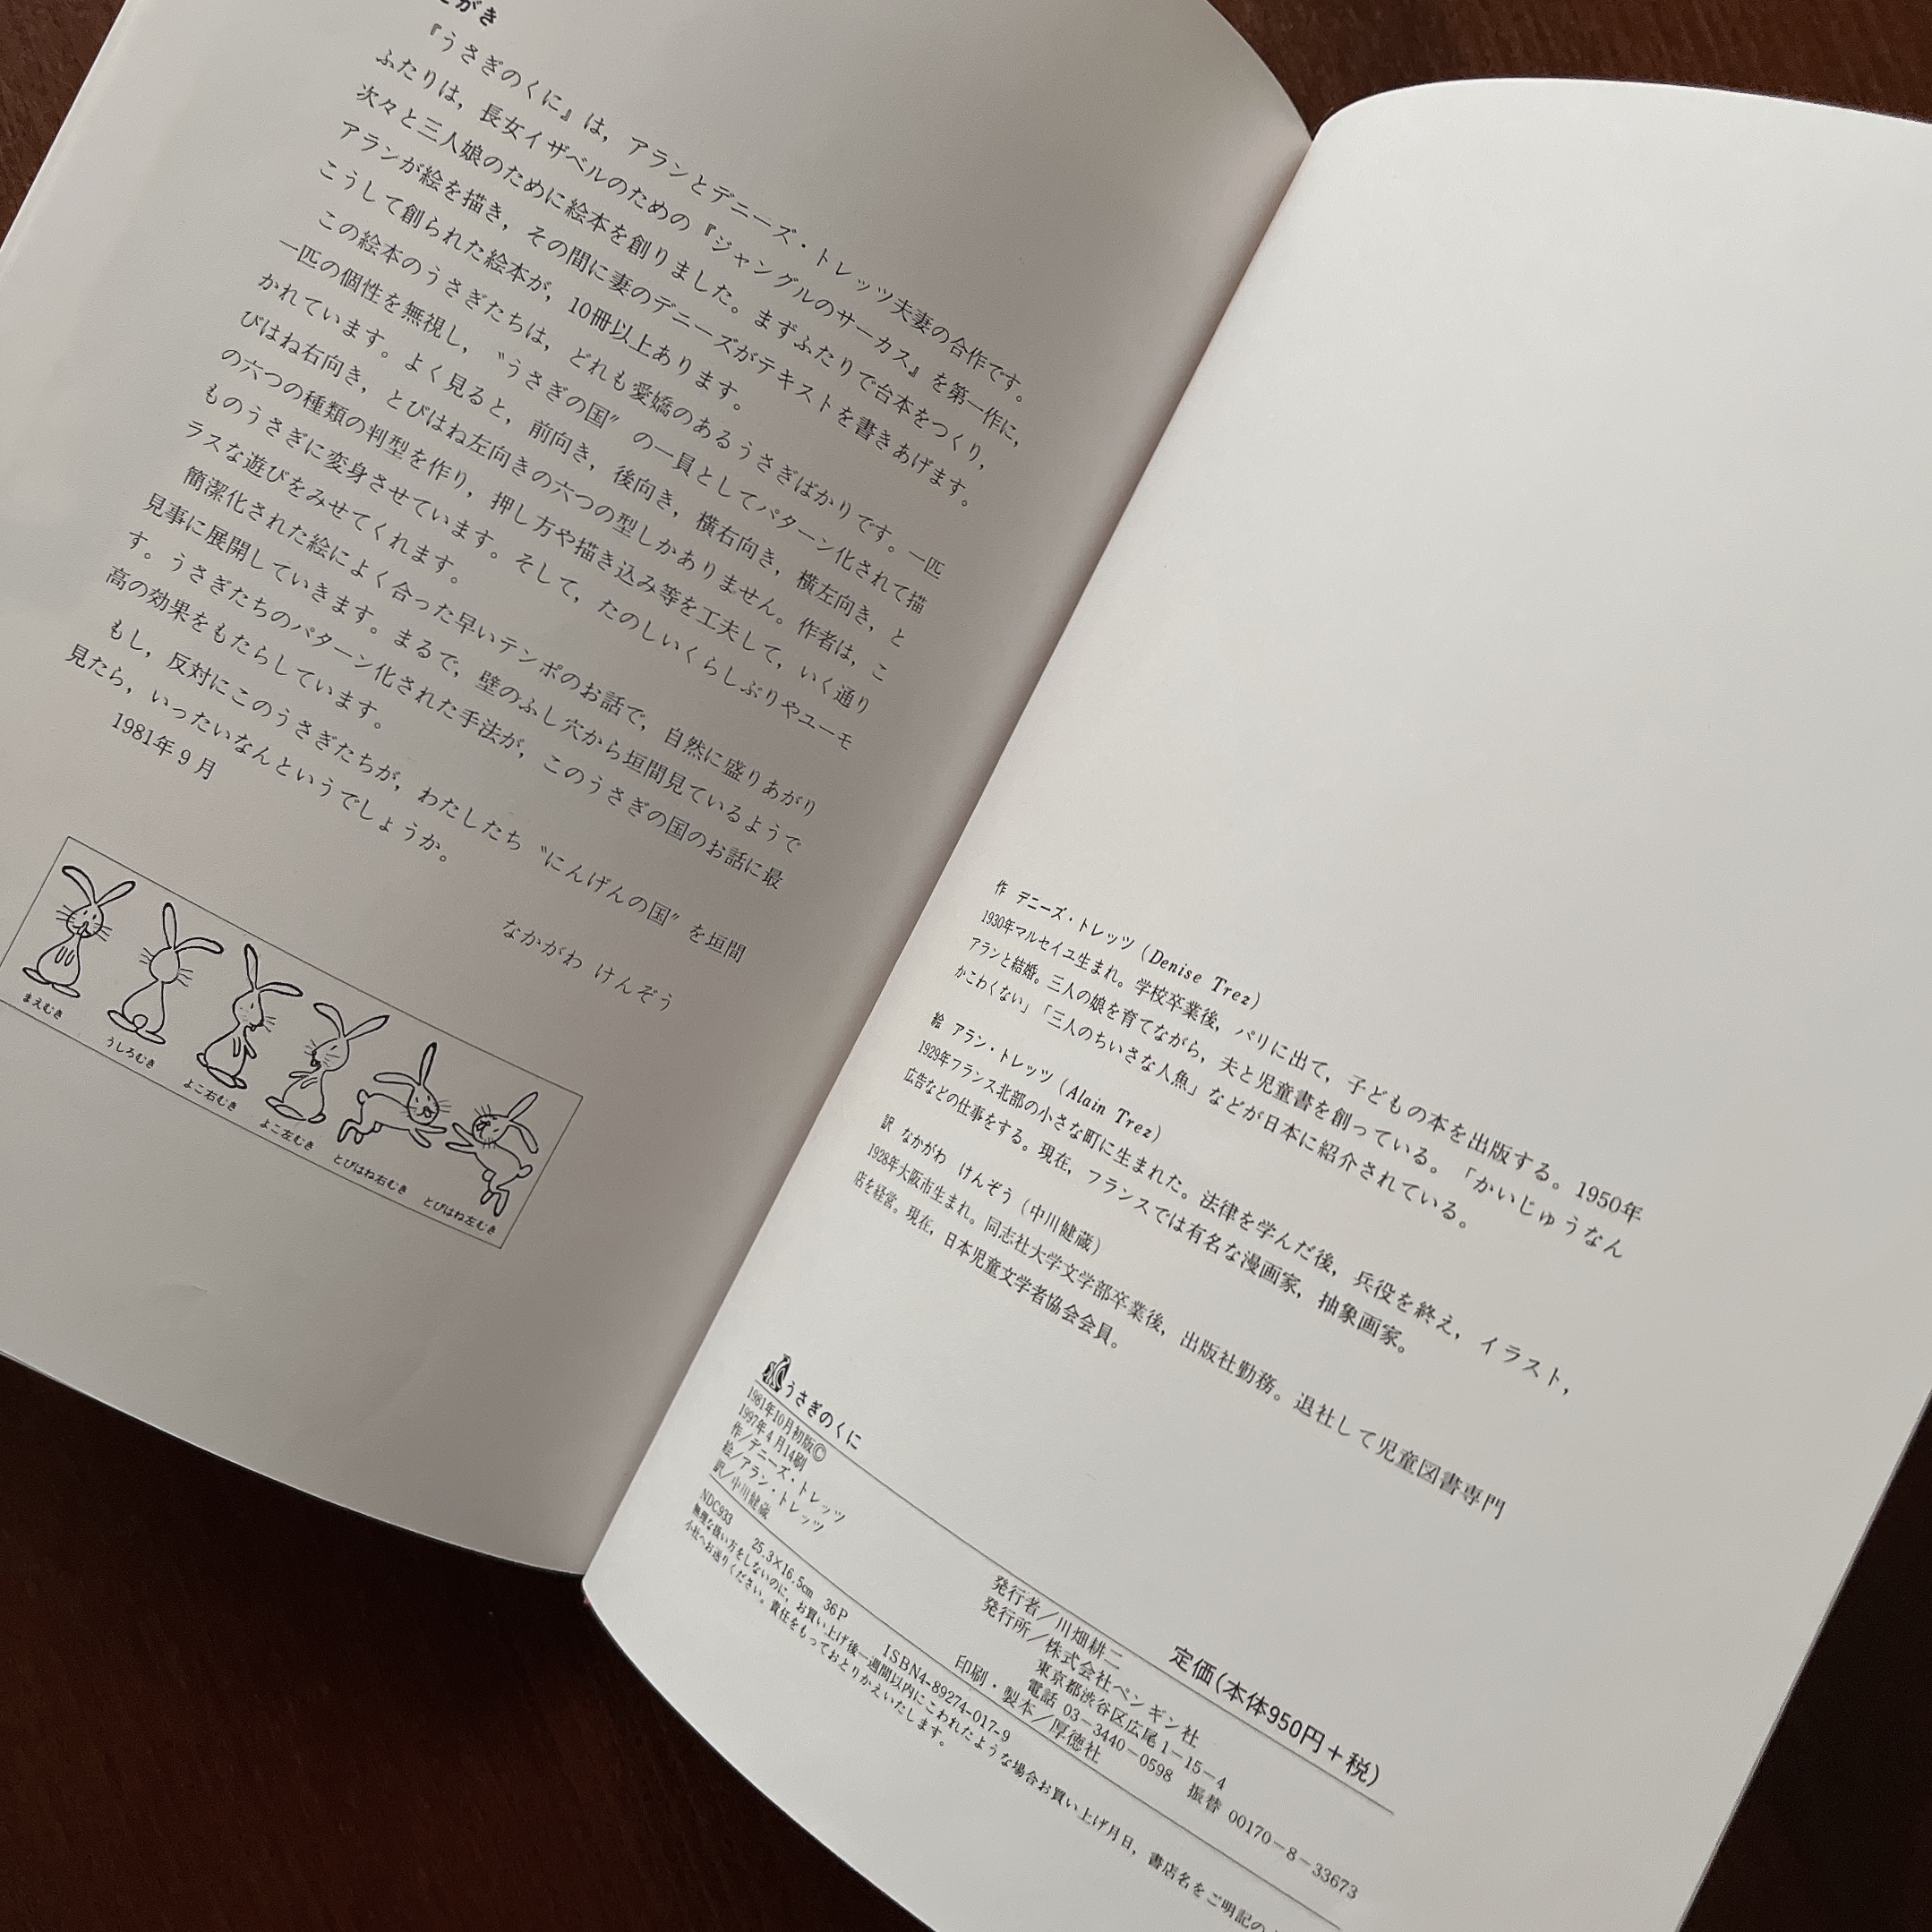 がき
『うさぎのくに』は，アランとデニーズ・トレッツ夫妻の合作です。
ふたりは，長女イザベルのための『ジャングルのサーカス』を第一作に，
次々と三人娘のために絵本を創りました。まずふたりで台本をつくり，
アランが絵を描き，その間に妻のデニーズがテキストを書きあげます。
こうして創られた絵本が，10冊以上あります。
この絵本のうさぎたちは，どれも愛嬌のあるうさぎばかりです。一匹
一匹の個性を無視し，〝うさぎの国〟の一員としてパターン化されて描
かれています。よく見ると，前向き，後向き，横右向き，横左向き，と
びはね右向き，とびはね左向きの六つの型しかありません。作者は，こ
の六つの種類の判型を作り，押し方や描き込み等を工夫して，いく通り
ものうさぎに変身させています。そして，たのしいくらしぶりやユーモ
ラスな遊びをみせてくれます。
簡潔化された絵によく合った早いテンポのお話で，自然に盛りあがり
見事に展開していきます。まるで，壁のふし穴から垣間見ているようで
す。うさぎたちのパターン化された手法が，このうさぎの国のお話に最
高の効果をもたらしています。
もし，反対にこのうさぎたちが，わたしたち〝にんげんの国〟を垣間
見たら，いったいなんというでしょうか。
1981年9月
なかがわ けんぞう
まえむき
うしろむき
よこ右むき
よこ左むき
とびはね右むき
とびはね左むき
作 デニーズ・トレッツ（Denise Trez）
1930年マルセイユ生まれ。学校卒業後，パリに出て，子どもの本を出版する。1950年
アランと結婚。三人の娘を育てながら，夫と児童書を創っている。「かいじゅうなん
かこわくない」「三人のちいさな人魚」などが日本に紹介されている。
絵 アラン・トレッツ（Alain Trez）
1929年フランス北部の小さな町に生まれた。法律を学んだ後，兵役を終え，イラスト，
広告などの仕事をする。現在，フランスでは有名な漫画家，抽象画家。
訳 なかがわ けんぞう（中川健蔵）
1928年大阪市生まれ。同志社大学文学部卒業後，出版社勤務。退社して児童図書専門
店を経営。現在，日本児童文学者協会会員。
うさぎのくに
1981年10月初版©
1997年4月14刷
作／デニーズ・トレッツ
絵／アラン・トレッツ
訳／中川健蔵
定価（本体950円＋税）
発行者／川畑耕二
発行所／株式会社ペンギン社
東京都渋谷区広尾1-15-4
電話 03-3440-0598 振替 00170-8-33673
印刷・製本／厚徳社
NDC933 25.3×16.5cm 36P ISBN4-89274-017-9
無理な扱い方をしないのに，お買い上げ後一週間以内にこわれたような場合お買い上げ月日，書店名をご明記の
小社へお送りください。責任をもっておとりかえいたします。